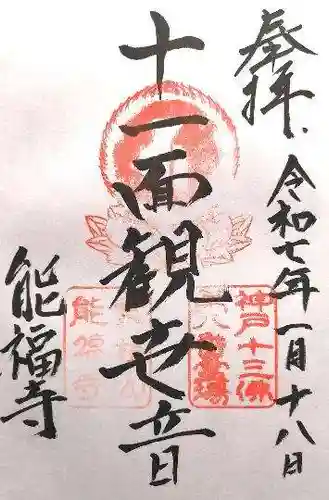 奉拝
令和七年一月十八日
十一面観世音
神戸十三佛
霊場
能福寺